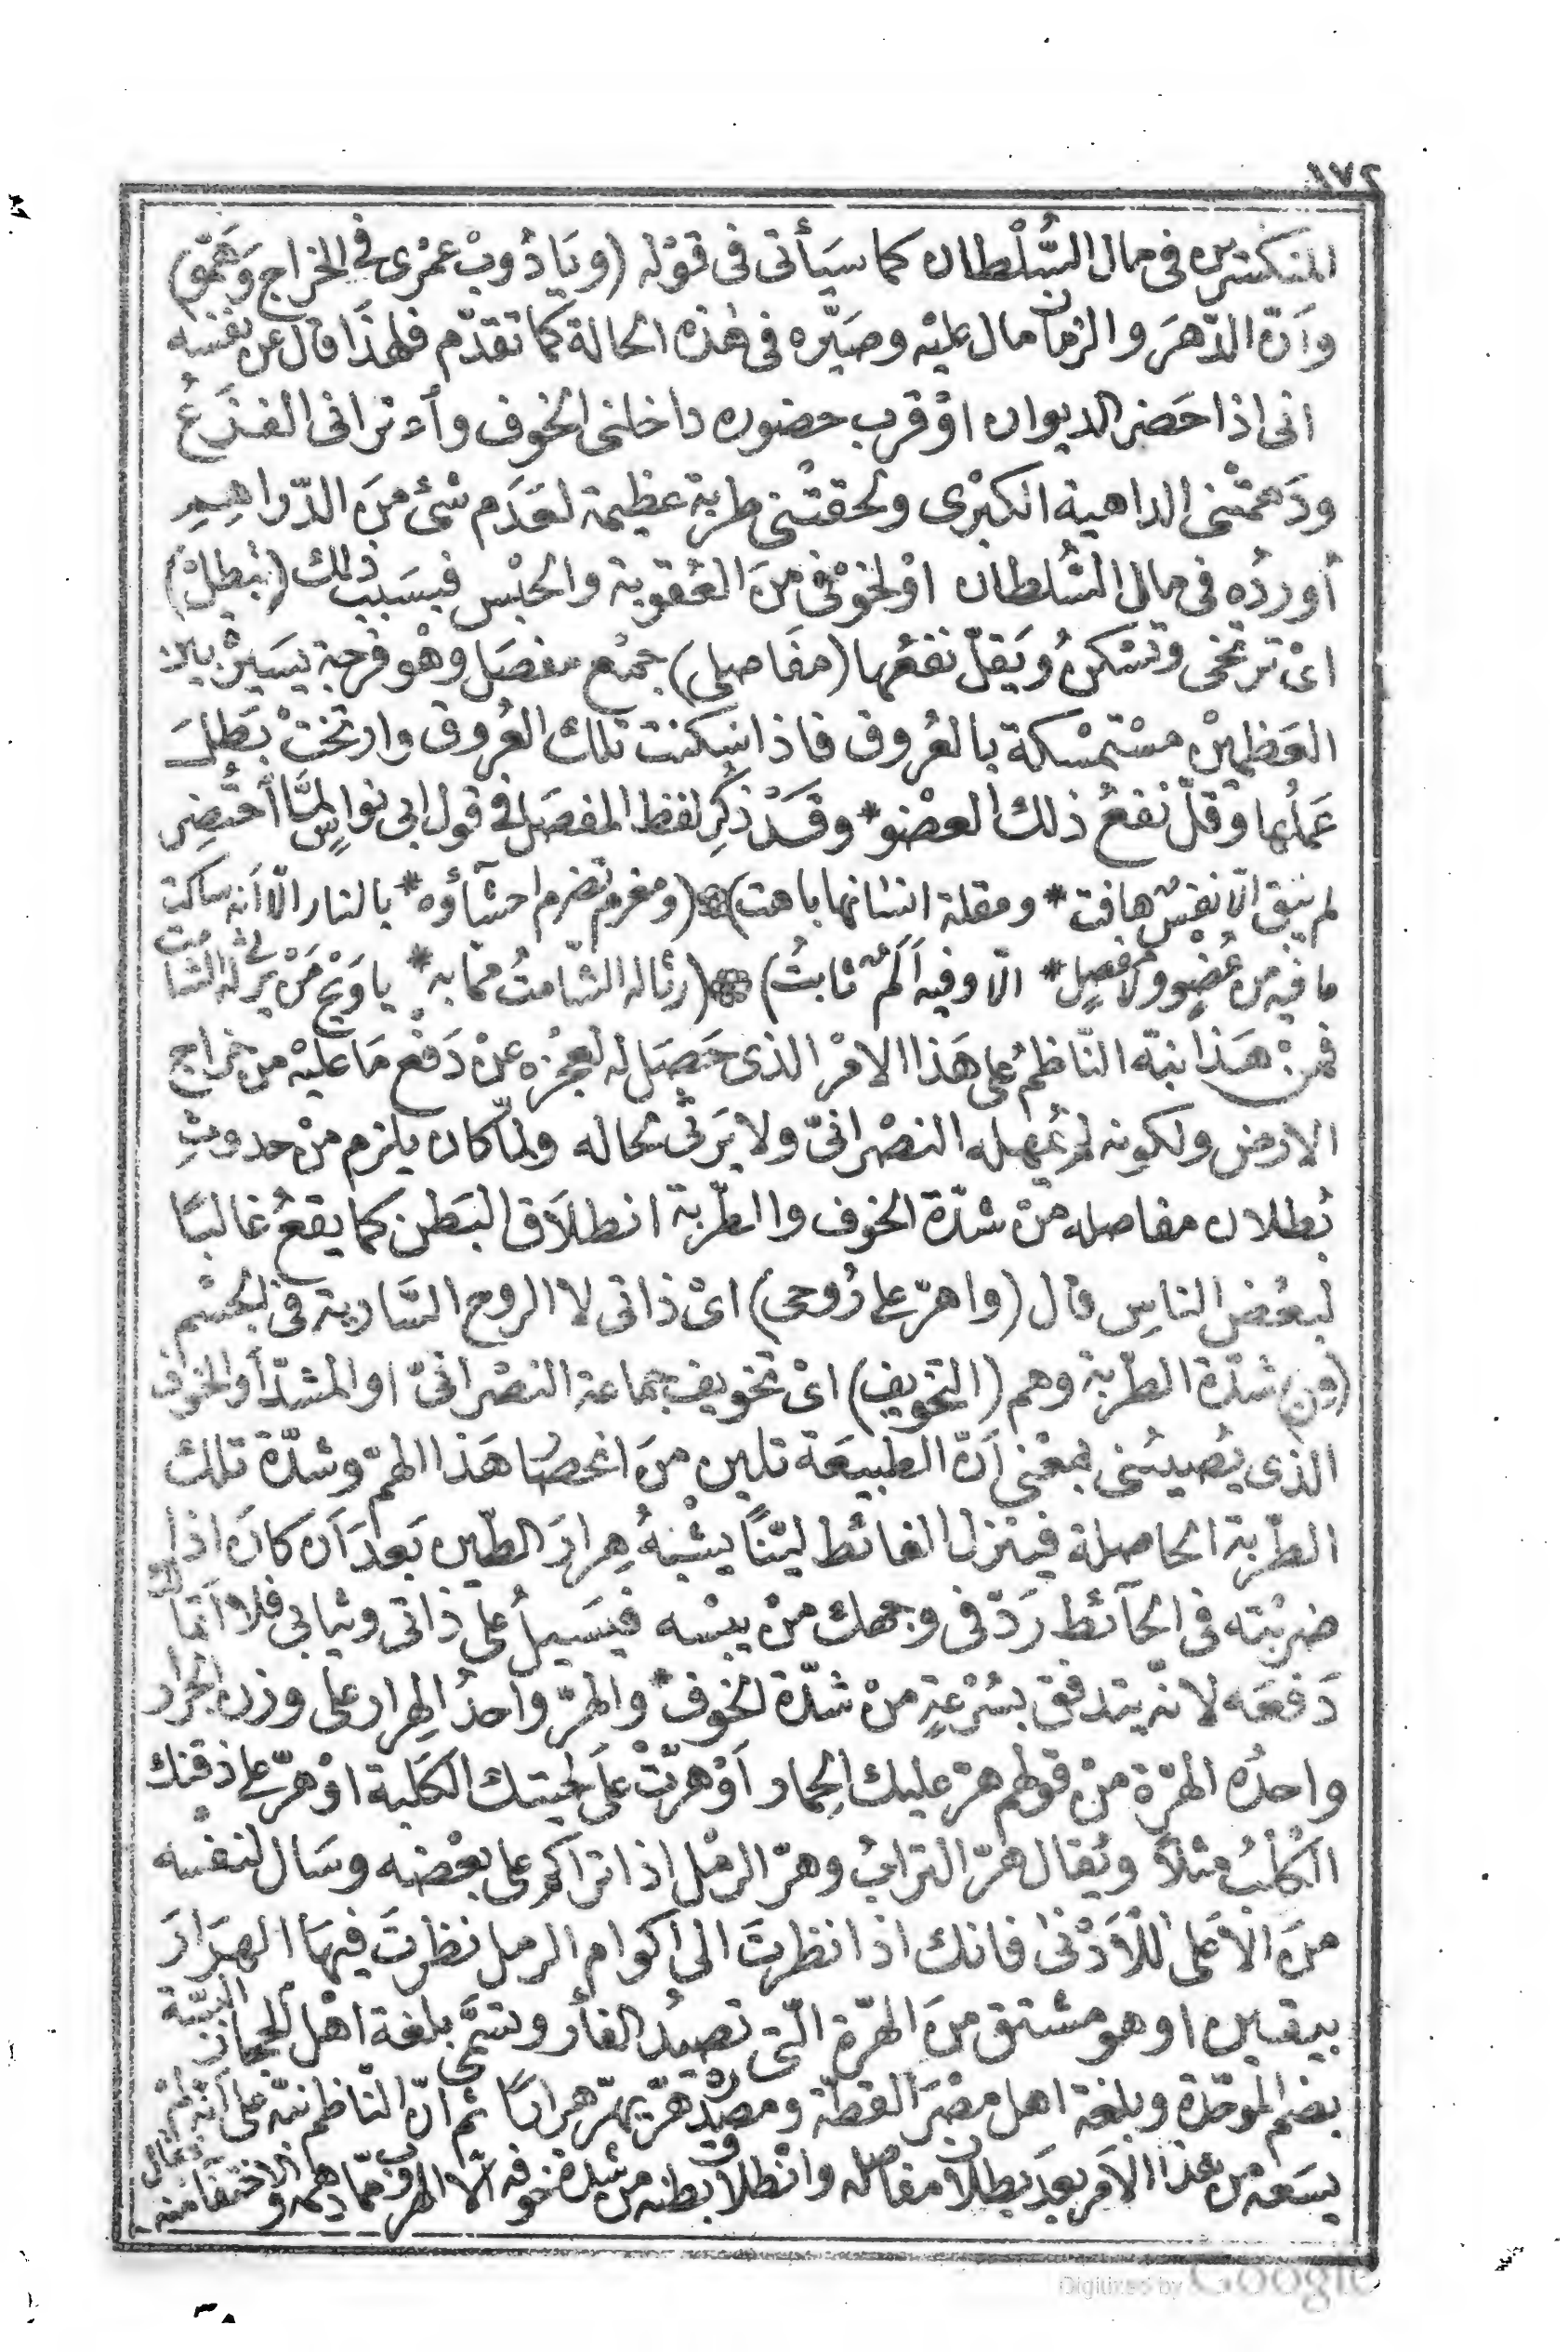 ١٧٢
المنكسرين فى مال السُّلْطان كما سيَأتى فى قوْله (ويَا دُوبْ عمْرى فى الخراج وَهَمّو)
وَاَنّ الدّهرَ والزمان مال عليْه وصَيّره فى هٰذه الحالة كَمَا تقدّم فلهٰذَا قال عن نفسه
انى اذا حَضر الديوان اوْ قرب حضوره داخلنى الخوف وٱعترانى الفزَعُ
ودَهَمتْنى الداهية الكبْرى ولحقتْنى طربة عظيمة لعَدَم شْئ منَ الدّراهِمِ
أوردُه فى مال السُّلطان اوْلخوْفى منَ العُقوبة والحبْس فبسَبَب ذلك (تبْطِلْ)
اىْ ترتخى وتسْكنُ ويَقلّ نفعُها (مفَاصلى) جمْع مفصَل وهْو فرجة يَسيرَة بين
العَظمَيْن مسْتمْسكة بالعُروق فاذا سكنت تلك العُروق وارتختْ بَطلَ
عَملُها وقَلّ نفعُ ذلك العضْو * وقَدْ ذُكِر لفظ المفصَل فى قول ابى نواسٍ لمَّا أحْتُضِر
لم يَبق الّا نفَسٌ هافت * ومقلة انسانها باهت) (ومغرم تضرم احشآؤه * بالنار الّا اَنه ساكت
ما فيه من عُضوٍ ولا مفصلٍ * الّا وفيه اَلَمٌ ثابتُ) (رثٰاله الشّامتُ ممّا به * ياوَيْحَ مَنْ يَرْثى له الشامت
فمنْ هَذا نبّه النّاظمُ على هَذا الامْر الذى حَصَل له لعجْزه عنْ دَفْع مَا عليْه من خراج
الارض ولكونه لم يُمهله النصْرانىّ ولا يَرثى لحاله ولمّا كان يلزم منْ حدوثِ
بُطلان مفاصله منْ شدّة الخوف والطّربة انطلاَق البَطن كما يقعُ غالبًا
لبعْض الناسِ قال (واهرّ على رُوحى) اىْ ذاتى لا الروح السَّارية فى الجسْم
(من) شدّة الطّربة وهم (التخويف) اىْ تخويف جماعة النصْرانىّ او المشدّ أو الخوف
الذى يُصيبُنى بمعْنى اَنّ الطبيعَة تلين منَ انحصار هَذا الهمّ وشدّة تلك
الطّربة الحاصلة فينزل الغائط ليّنًا يشْبهُ هِرارَ الطّين بَعدَ اَن كانَ اذا
ضربْته فى الحآئط رَدّ فى وجهك منْ يبسْه فيَسيلُ على ذاتى وثيابى فلا اَتمالك
دَفعَه لانّه يتدفق بسُرْعةٍ منْ شدّة الخوف * والهرّ واحدُ الهِرار على وزن الجرار
واحدُه الهرّة منْ قولهم هرّ عليك الحِمار اَوْ هرّتْ علَى لحيتك الكَلبة اوْ هرّ على ذقنك
الكَلْبُ مثلاً ويُقال هرّ الترابُ وهرّ الرمْل اذا تراكم على بعْضه وسَال لنفسْه
منَ الاَعْلى للاَدْنٰى فانك اذا نظرتَ الى اكوام الرمل نظرتَ فيهَا الهرَارَ
بيقين او هو مشتق منَ الهرّة الّتى تصيدُ الفأر وتسَمّى بلغة اهْل الحجاز البسّة
بضمّ الموحّدة وبلغة اهل مصْرَ القطّة ومصْدره هَرّ يهرّ هرارًا ثم انّ النّاظم نبّه على اَنّه لم
يسَعه من هذا الاَمر بعدَ بطلان مفاصله وانْطلاق بطنه من شدة خوفه الّا الهرب ممّا دهمه والاختفاء منه فقال
Digitized by Google